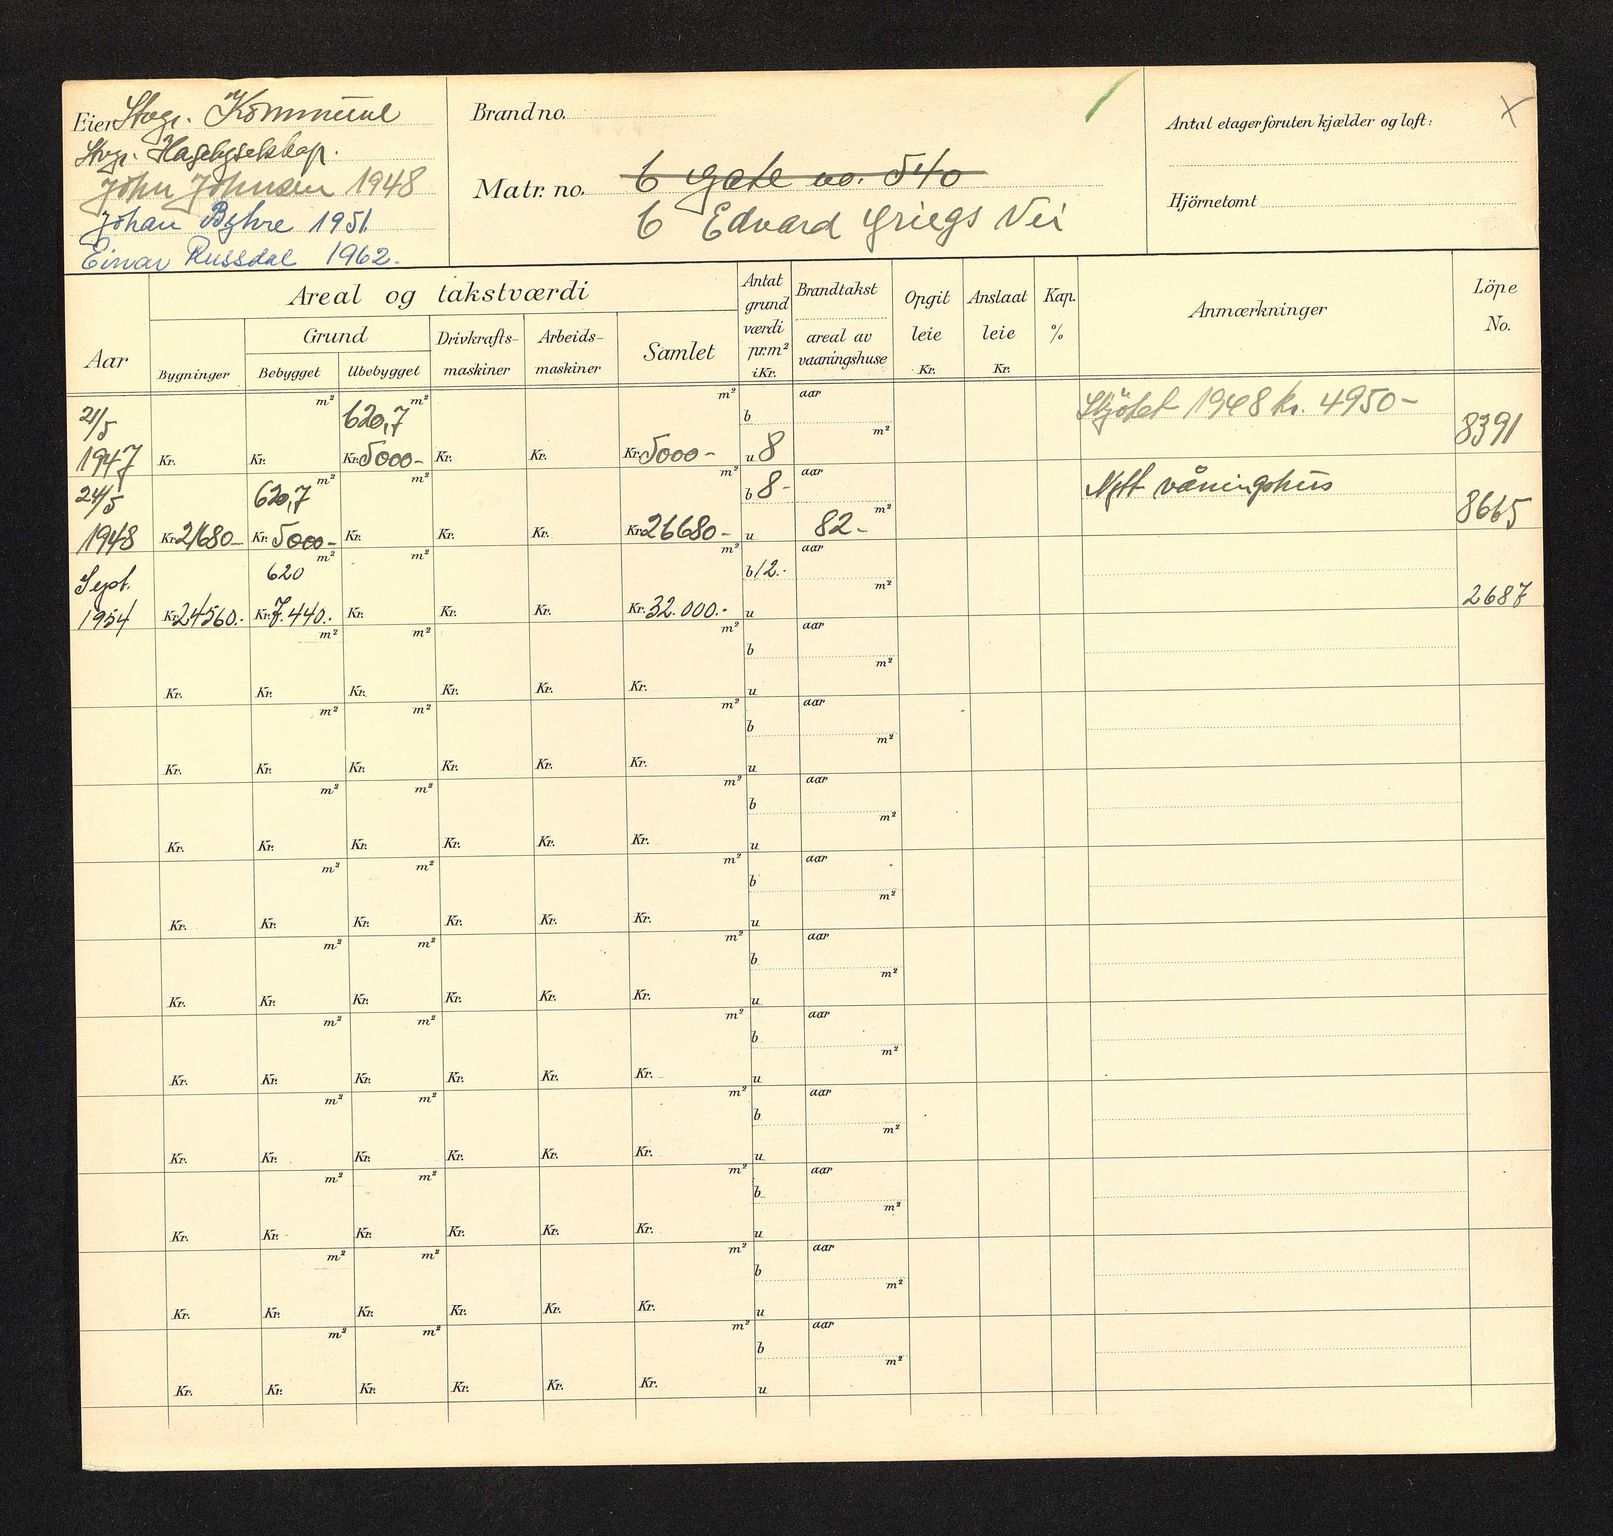 Eier Stvgr. Kommune
Stvgr. Hagebyselskap.
John Johnsen 1948
Johan Byhre 1951
Einar Russdal 1962.
Brand no.
Matr. no. 6 Gate no. 540
6 Edvard Griegs Vei
Antal etager foruten kjælder og loft:
X
Hjörnetomt
Aar
Areal og takstværdi
Bygninger
Grund
Bebygget
Ubebygget
Drivkrafts-
maskiner
Arbeids-
maskiner
Samlet
Antat
grund
værdi
pr.m²
i Kr.
Brandtakst
areal av
vaaningshuse
Opgit
leie
Kr.
Anslaat
leie
Kr.
Kap.
%
Anmærkninger
Löpe
No.
m² m² m² aar
21/5 620,7 b Skjötet 1948 kr. 4950- 8391
m²
1947 Kr. Kr. Kr. 5000- Kr. Kr. Kr. 5000- u 8
m² m² m² aar
24/5 620,7 b 8- Nytt våningshus 8665
m²
1948 Kr. 21680- Kr. 5000- Kr. Kr. Kr. Kr. 26680- u 82-
m² m² m² aar
Sept. 620 b 12.- 2687
m²
1954 Kr. 24560.- Kr. 7.440.- Kr. Kr. Kr. Kr. 32.000.- u
m² m² m² aar
b
m²
Kr. Kr. Kr. Kr. Kr. Kr. u
m² m² m² aar
b
m²
Kr. Kr. Kr. Kr. Kr. Kr. u
m² m² m² aar
b
m²
Kr. Kr. Kr. Kr. Kr. Kr. u
m² m² m² aar
b
m²
Kr. Kr. Kr. Kr. Kr. Kr. u
m² m² m² aar
b
m²
Kr. Kr. Kr. Kr. Kr. Kr. u
m² m² m² aar
b
m²
Kr. Kr. Kr. Kr. Kr. Kr. u
m² m² m² aar
b
m²
Kr. Kr. Kr. Kr. Kr. Kr. u
m² m² m² aar
b
m²
Kr. Kr. Kr. Kr. Kr. Kr. u
m² m² m² aar
b
m²
Kr. Kr. Kr. Kr. Kr. Kr. u
m² m² m² aar
b
m²
Kr. Kr. Kr. Kr. Kr. Kr. u